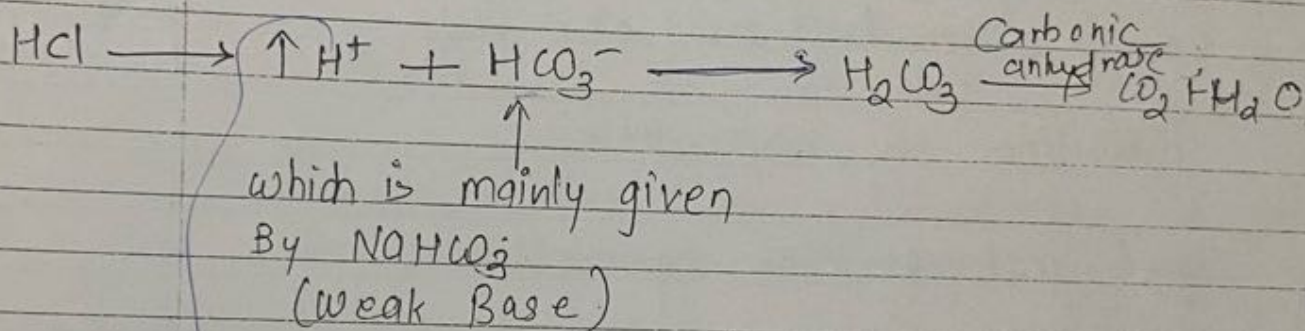 HCl ⟶ ↑ H⁺ + HCO₃⁻ ⟶ H₂CO₃ Carbonic anhydrase ⟶ CO₂ + H₂O
↑
which is mainly given
By NaHCO₃
(Weak Base)